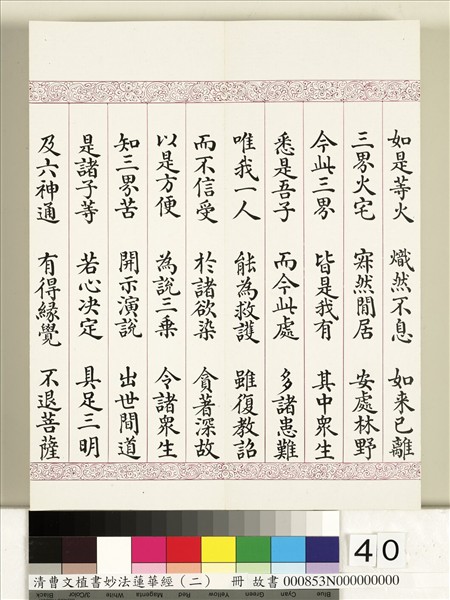 如是等火 熾然不息 如来已離
三界火宅 寂然閒居 安處林野
今此三界 皆是我有 其中衆生
悉是吾子 而今此處 多諸患難
唯我一人 能為救護 雖復教詔
而不信受 於諸欲染 貪著深故
以是方便 為說三乗 令諸衆生
知三界苦 開示演說 出世間道
是諸子等 若心决定 具足三明
及六神通 有得緣覺 不退菩薩
40
清曹文植書妙法蓮華經(二) 冊 故書 000853N000000000
Blue Cyan Green Yellow Red Magenta White 3/Color Black